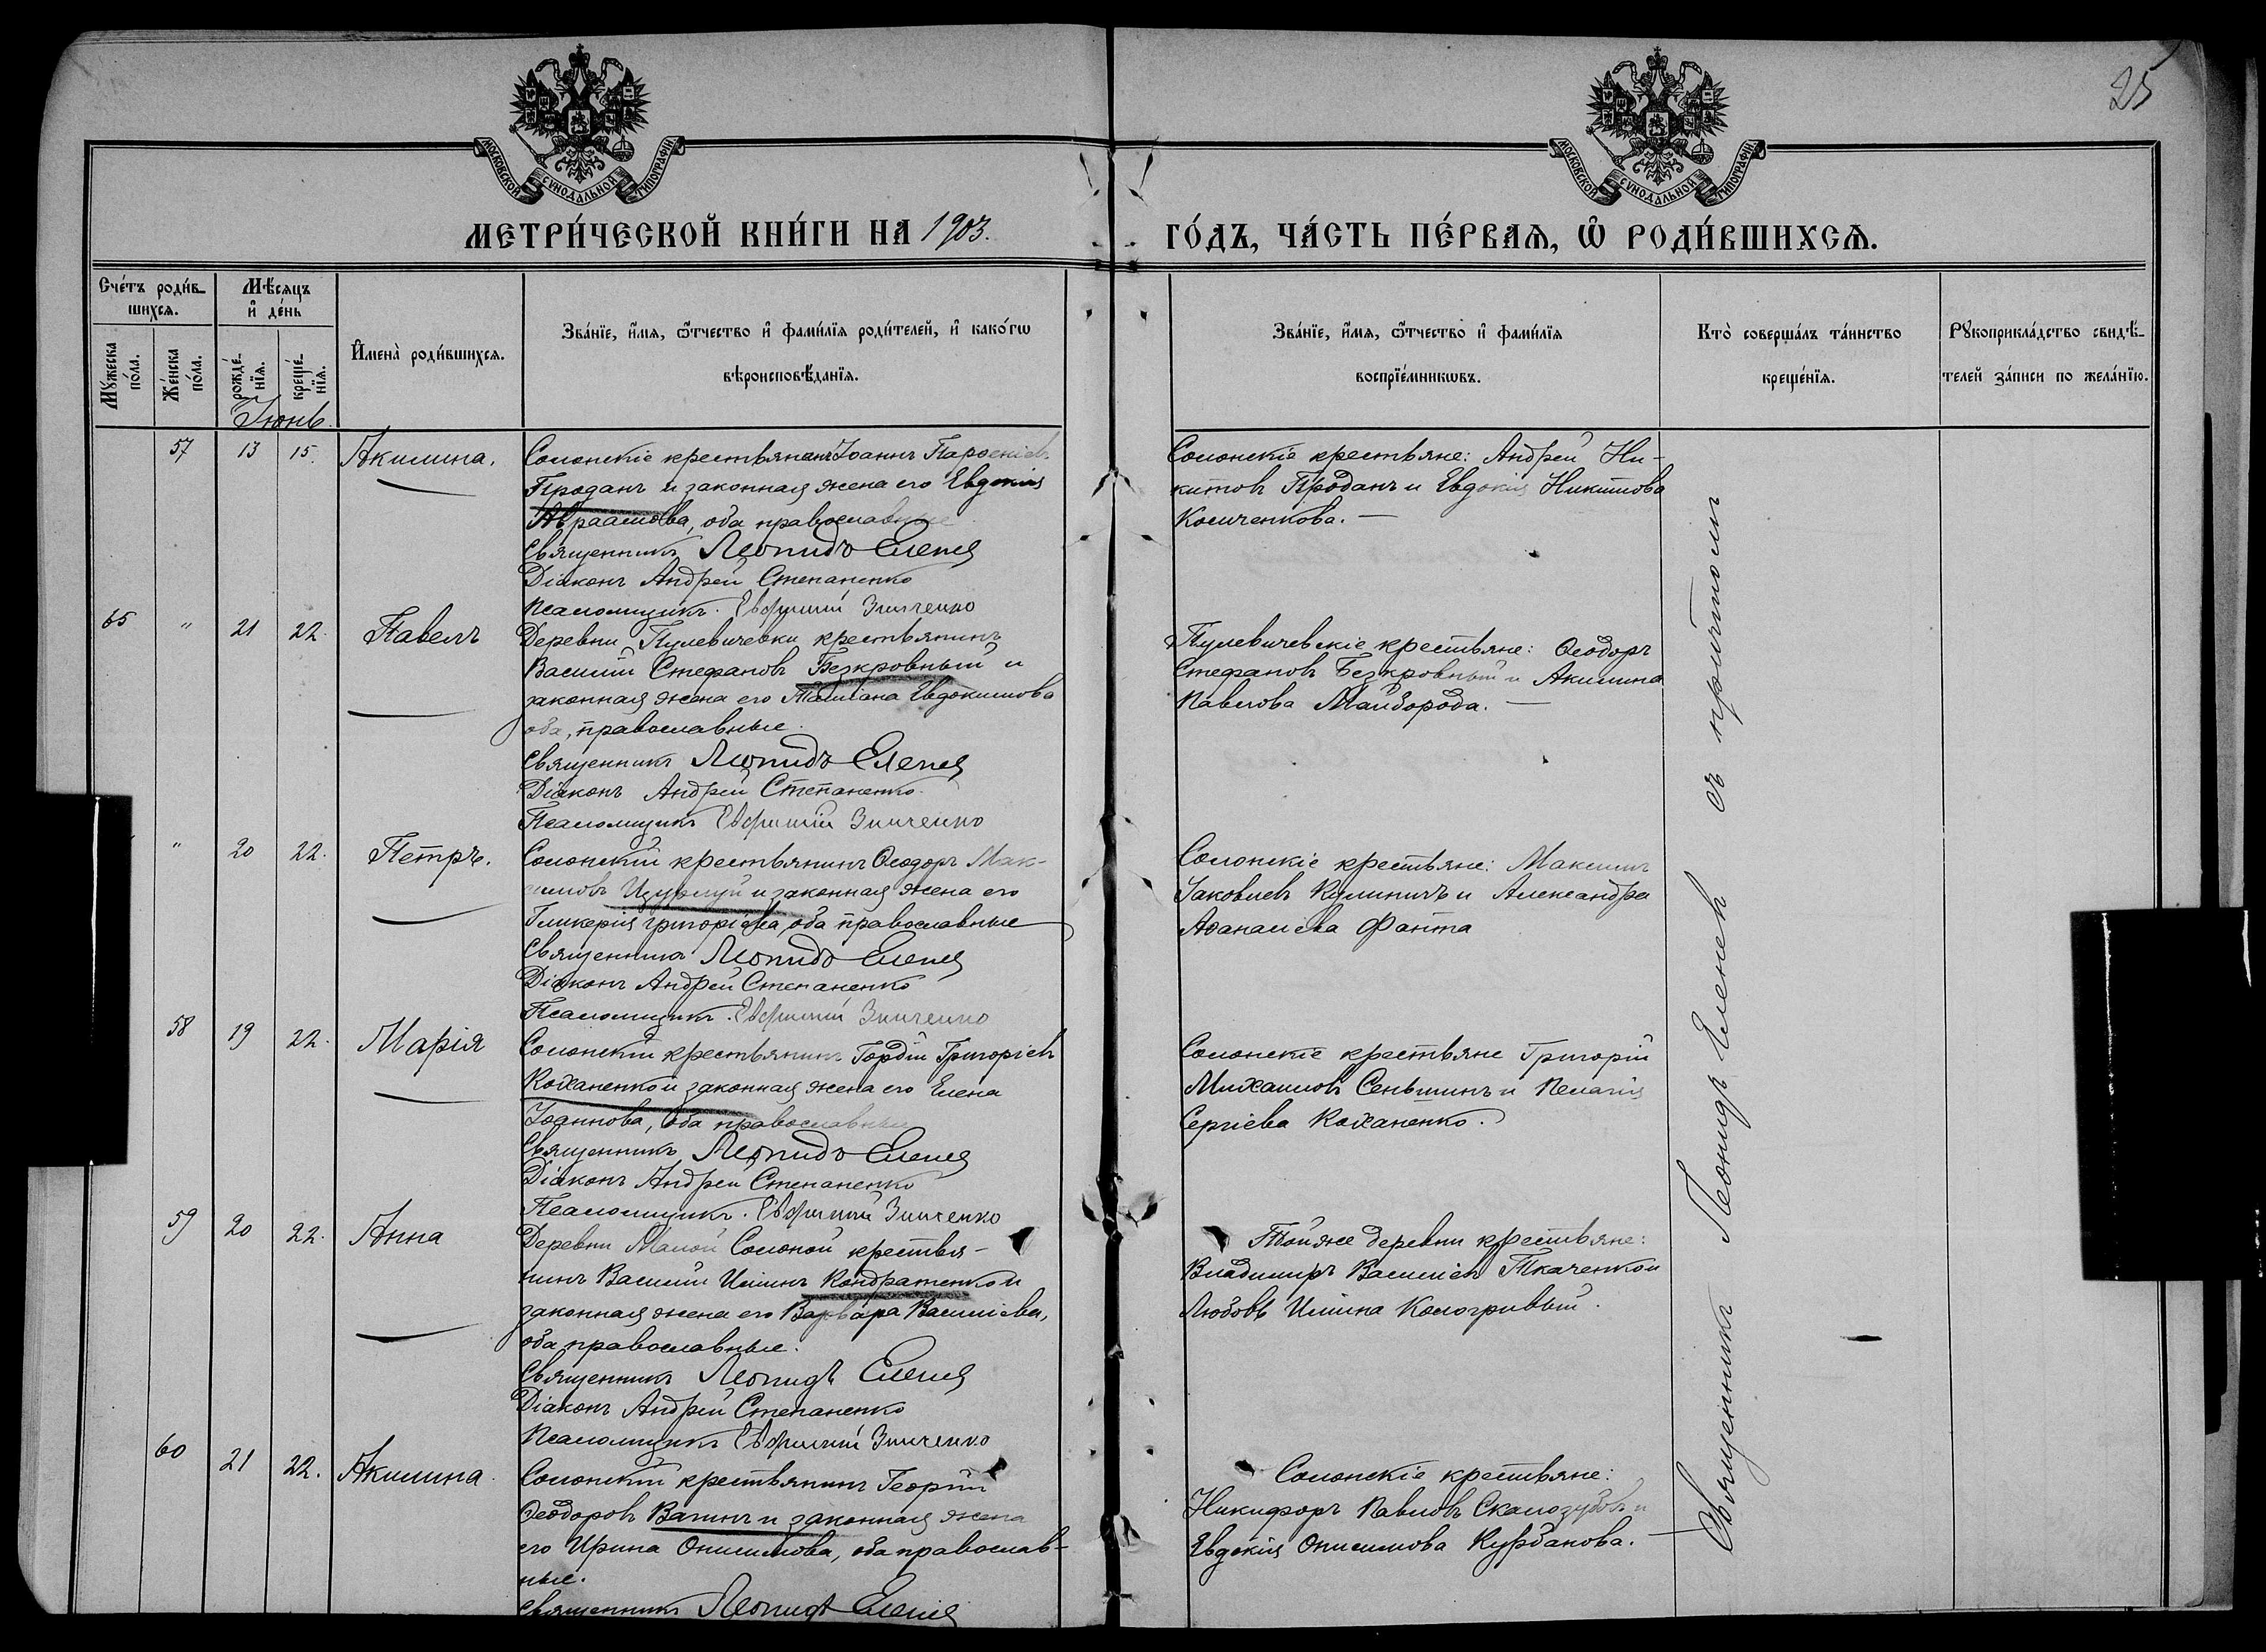 25
МОСКОВСКОЙ СѴНОДАЛЬНОЙ ТИПОГРАФІИ
МОСКОВСКОЙ СѴНОДАЛЬНОЙ ТИПОГРАФІИ
МЕТРИ́ЧЕСКОЙ КНИ́ГИ НА 1903. ГО́ДЪ, ЧА́СТЬ ПЕ́РВАѦ, Ѡ РОДИ́ВШИХСѦ.
Сче́тъ роди́в-
шихсѧ.
Мꙋ́жеска по́ла.
Же́нска по́ла.
Мѣ́сѧцъ и҆ де́нь
рожде́-нїѧ.
креще́-нїѧ.
Имена̀ роди́вшихсѧ.
Зва́нїе, и҆́мѧ, ѻ҆́тчество и҆ фами́лїѧ роди́телей, и҆ како́гѡ
вѣроисповѣ́данїѧ.
Зва́нїе, и҆́мѧ, ѻ҆́тчество и҆ фами́лїѧ
воспрїе́мникѡвъ.
Кто̀ соверша́лъ та́инство
креще́нїѧ.
Рꙋкоприкла́дство свидѣ́-
телей за́писи по жела́нїю.
Іюнь.
57 13 15. Акилина.
Солонскіе крестьянинъ Іоаннъ Парѳеніевъ
Проданъ и законная жена его Евдокія
Авраамова, оба православные
Священникъ Леонидъ Еленев
Діаконъ Андрей Степаненко
Псаломщикъ. Евфимій Зинченко
Солонскіе крестьяне: Андрей Ни-
китовъ Проданъ и Евдокія Никитова
Косиченкова. —
65 " 21 22. Павелъ
Деревни Пулевичевки крестьянинъ
Василій Стефановъ Безкровный и
законная жена его Татіана Евдокимова
оба, православные.
Священникъ Леонидъ Еленев
Діаконъ Андрей Степаненко.
Псаломщикъ Евфимій Зинченко
Пулевичевскіе крестьяне: Ѳеодоръ
Стефановъ Безкровный и Акилина
Павлова Майборода. —
" 20 22. Петръ.
Солонскій крестьянинъ Ѳеодоръ Мак-
симовъ и законная жена его
Гликерія Григоріева, оба православные
Священникъ Леонидъ Еленев
Діаконъ Андрей Степаненко
Псаломщикъ. Евфимій Зинченко
Солонскіе крестьяне: Максимъ
Іаковлевъ Кулиничъ и Александра
Аѳанасіева Фанта
58 19 22. Марія
Солонскій крестьянинъ Гордій Григоріевъ
Коханенко и законная жена его Елена
Іоаннова, оба православные
Священникъ Леонидъ Еленев
Діаконъ Андрей Степаненко
Псаломщикъ. Евфимій Зинченко
Солонскіе крестьяне Григорій
Михаиловъ Сеньшинъ и Пелагія
Сергіева Коханенко.
59 20 22. Анна
Деревни Малой Солоной крестья-
нинъ Василій Илiинъ Кондратенко и
законная жена его Варвара Василіева,
оба православные.
Священникъ Леонидъ Еленев
Діаконъ Андрей Степаненко
Псаломщикъ Евфимій Зинченко
Той же деревни крестьяне:
Владимиръ Василіевъ Ткаченко и
Любовь Илiина Кологривый.
60 21 22. Акилина.
Солонскій крестьянинъ Георгій
Ѳеодоровъ Вагинъ и законная жена
его Ирина Онисимова, оба православ-
ные.
Священникъ Леонидъ Еленев
Солонскіе крестьяне:
Никифоръ Павловъ Скалозубовъ и
Евдокія Онисимова Курбанова. —
Священникъ Леонидъ Еленевъ съ причтомъ